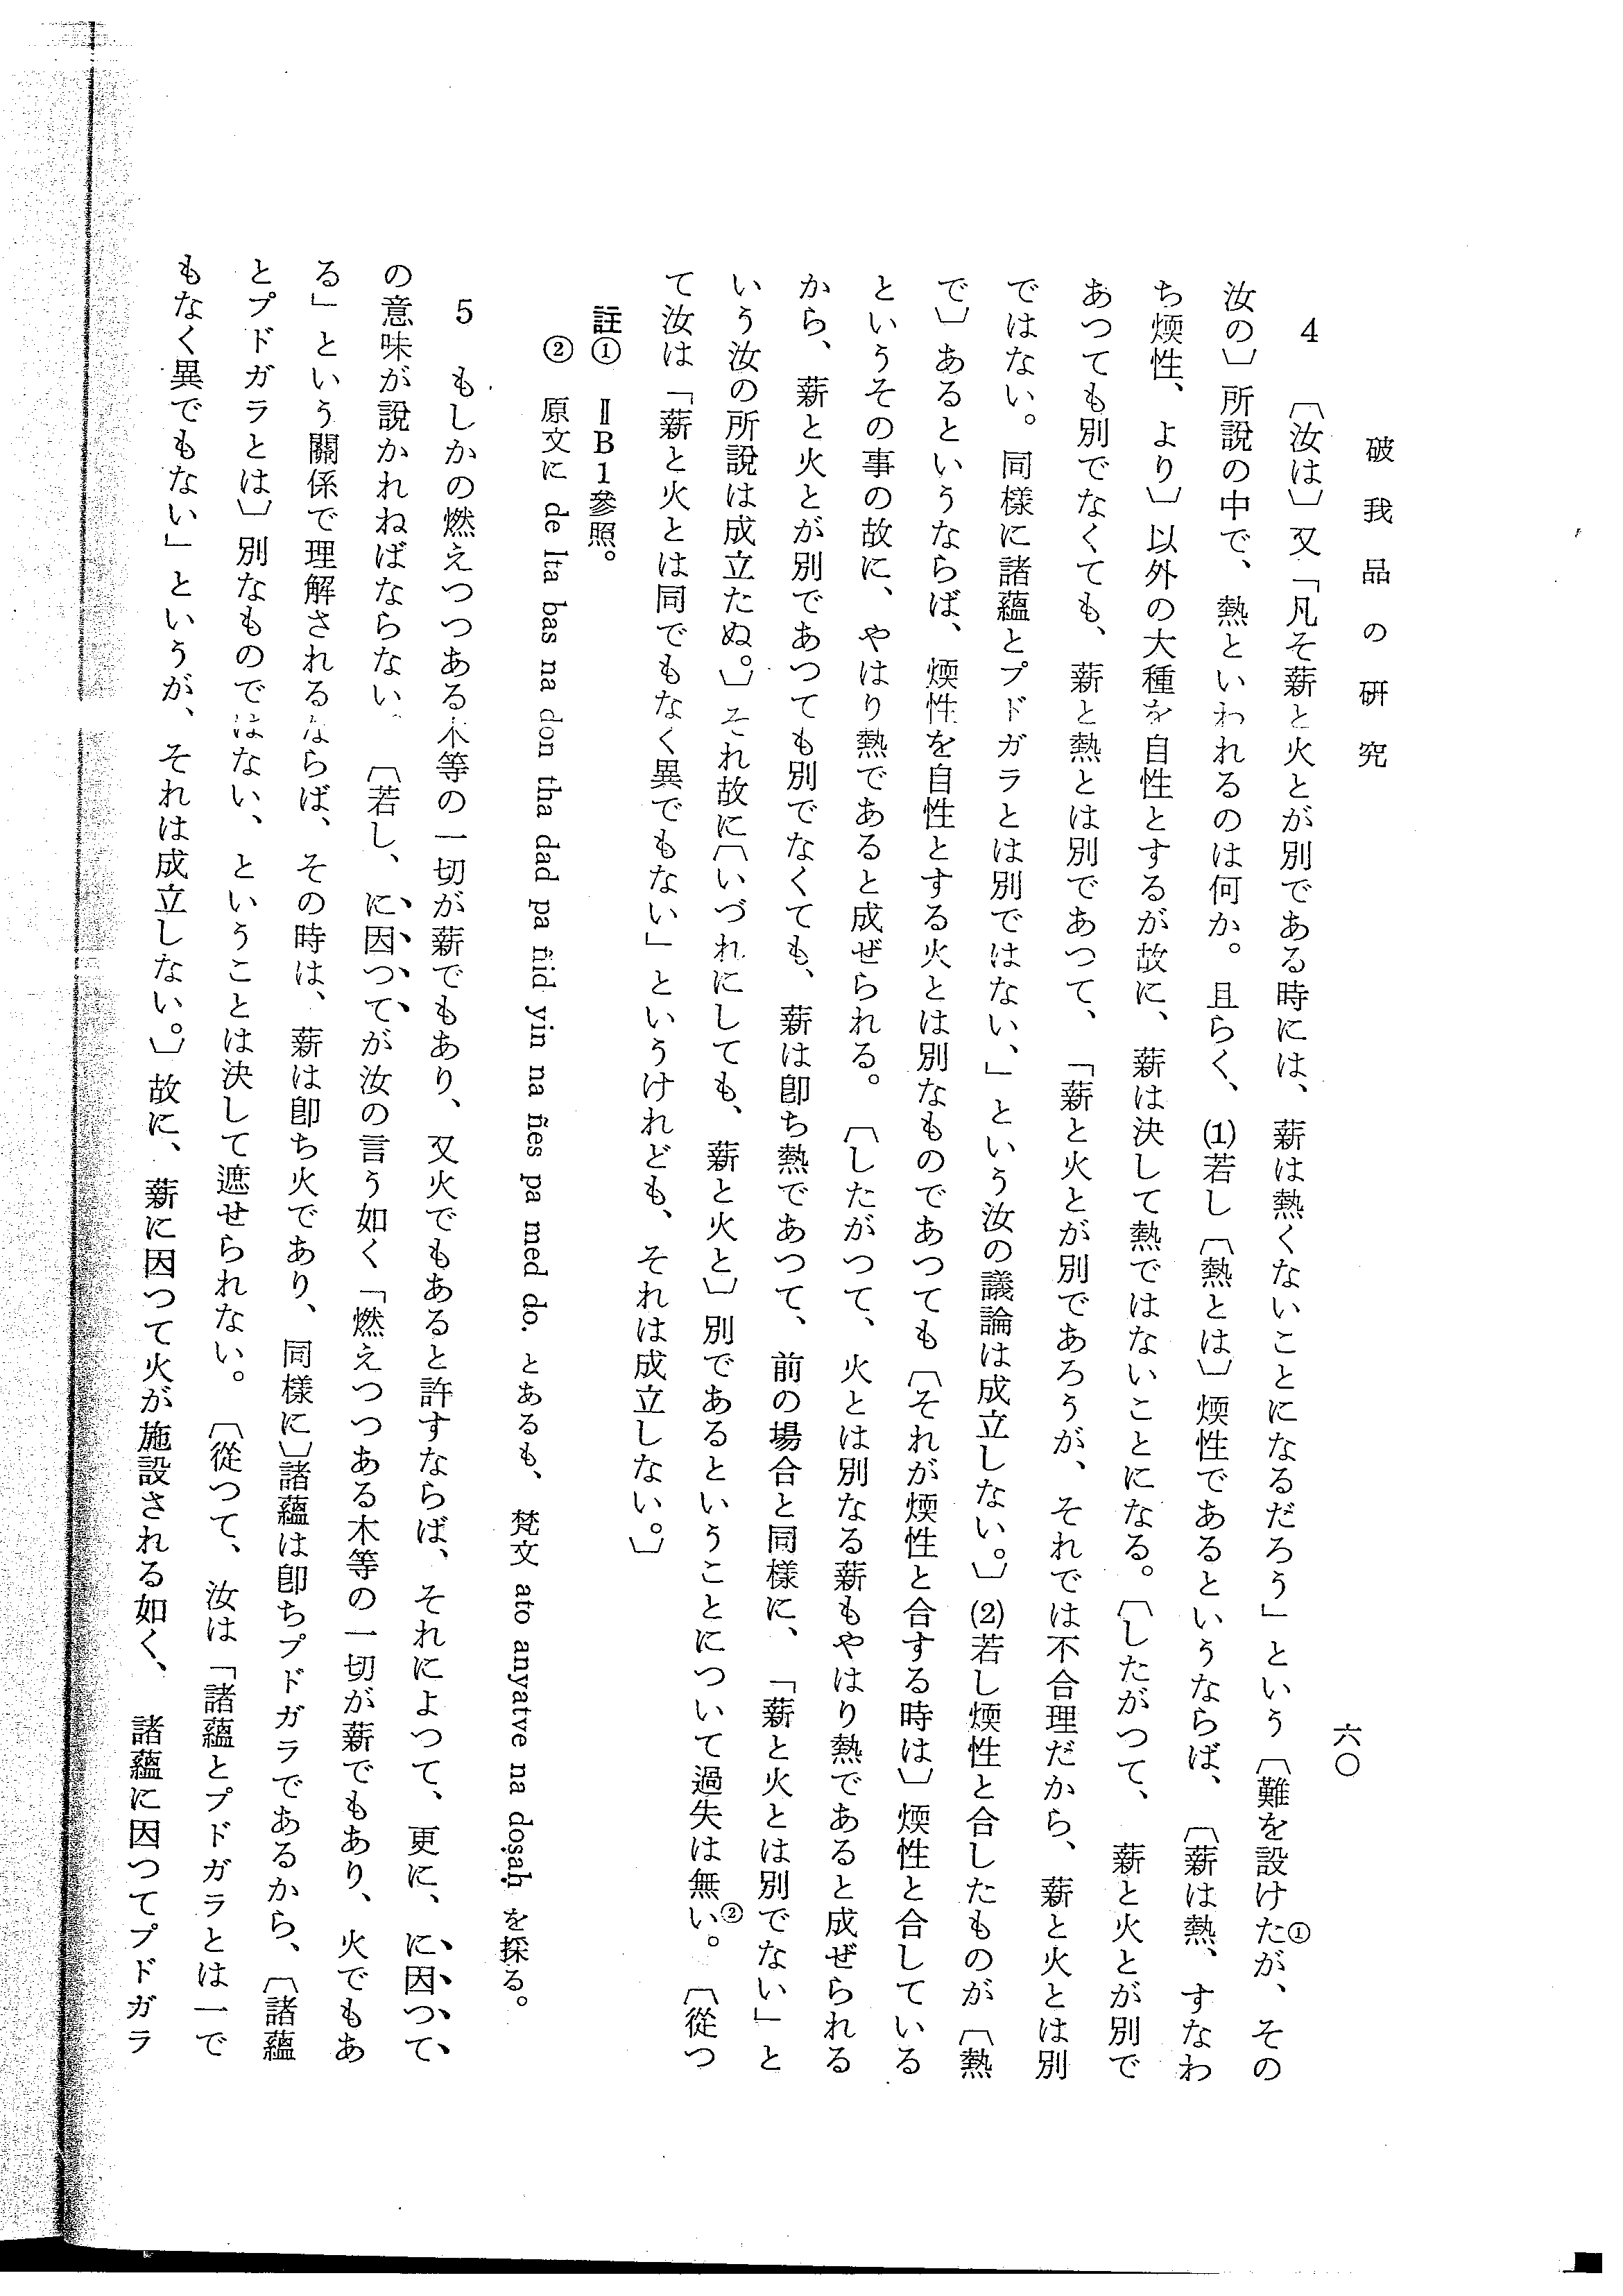 破我品の研究
六〇
4　〔汝は〕又「凡そ薪と火とが別である時には、薪は熱くないことになるだろう」という〔難を設けた①が、その
汝の〕所説の中で、熱といわれるのは何か。且らく、(1)若し〔熱とは〕煗性であるというならば、〔薪は熱、すなわ
ち煗性、より〕以外の大種を自性とするが故に、薪は決して熱ではないことになる。〔したがつて、薪と火とが別で
あつても別でなくても、薪と熱とは別であつて、「薪と火とが別であろうが、それでは不合理だから、薪と火とは別
ではない。同様に諸蘊とプドガラとは別ではない、」という汝の議論は成立しない。〕(2)若し煗性と合したものが〔熱
で〕あるというならば、煗性を自性とする火とは別なものであつても〔それが煗性と合する時は〕煗性と合している
というその事の故に、やはり熱であると成ぜられる。〔したがつて、火とは別なる薪もやはり熱であると成ぜられる
から、薪と火とが別であつても別でなくても、薪は卽ち熱であつて、前の場合と同様に、「薪と火とは別でない」と
いう汝の所說は成立たぬ。〕それ故に〔いづれにしても、薪と火と〕別であるということについて過失は無い②。〔從つ
て汝は「薪と火とは同でもなく異でもない」というけれども、それは成立しない。〕
註①　ⅡB1參照。
②　原文に de lta bas na don tha dad pa ñid yin na ñes pa med do. とあるも、梵文 ato anyatve na doṣaḥ を採る。
5　もしかの燃えつつある木等の一切が薪でもあり、又火でもあると許すならば、それによつて、更に、に因つて、
の意味が說かれねばならない。〔若し、に因つてが汝の言う如く「燃えつつある木等の一切が薪でもあり、火でもあ
る」という關係で理解されるならば、その時は、薪は卽ち火であり、同様に〕諸蘊は卽ちプドガラであるから、〔諸蘊
とプドガラとは〕別なものではない、ということは決して遮せられない。〔從つて、汝は「諸蘊とプドガラとは一で
もなく異でもない」というが、それは成立しない。〕故に、薪に因つて火が施設される如く、諸蘊に因つてプドガラ